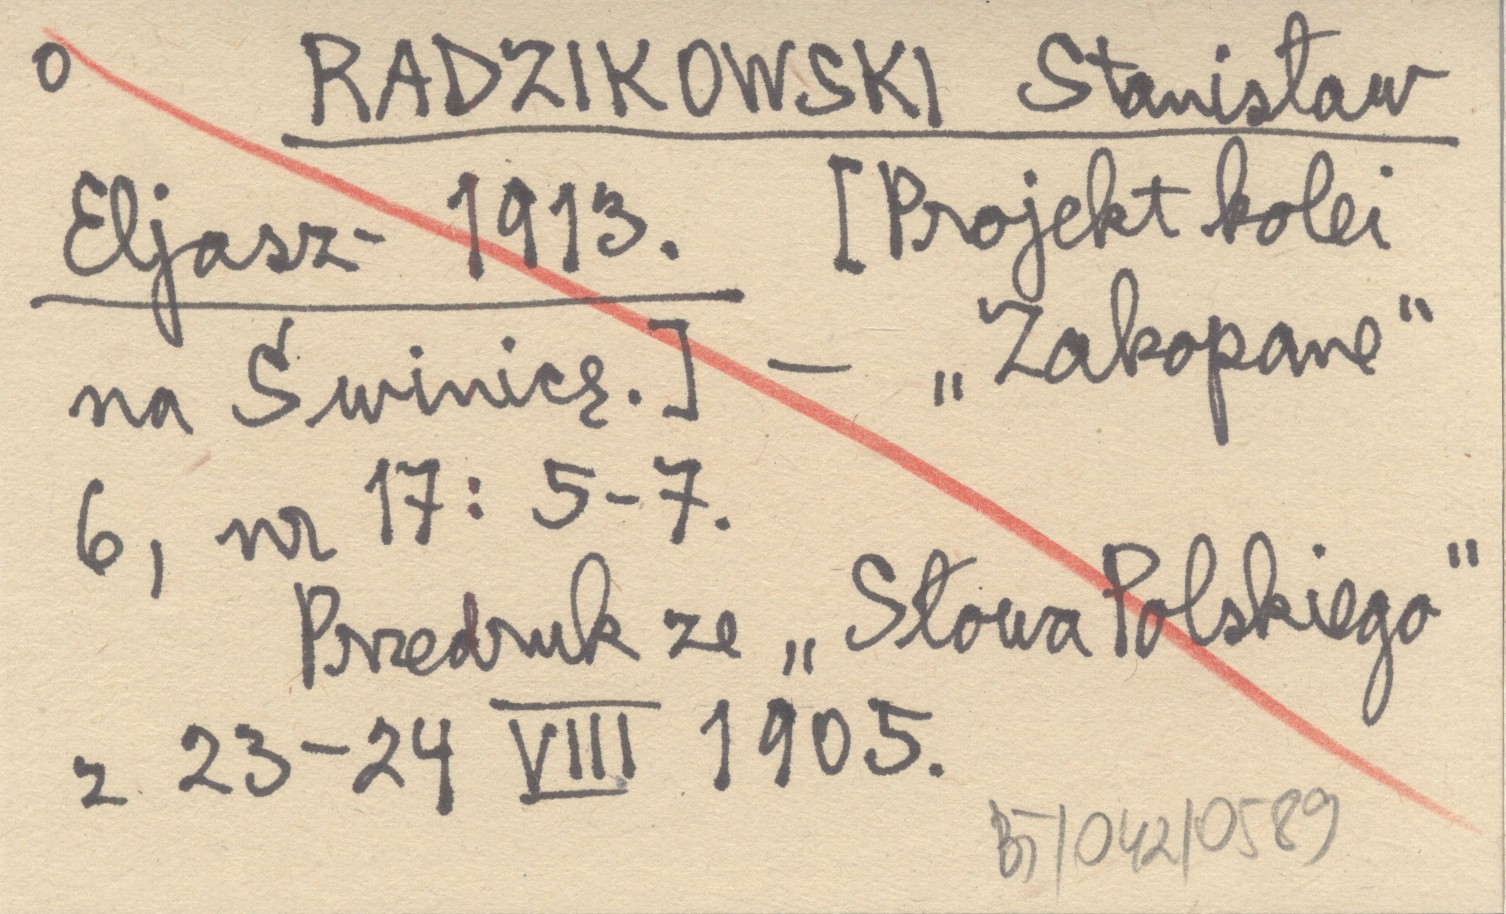 o RADZIKOWSKI Stanisław
Eljasz- 1913. [Projekt kolei
na Świnicę.] — „Zakopane“
6, nr 17: 5-7.
Przedruk ze „Słowa Polskiego“
z 23-24 VIII 1905.
BT/042/0589